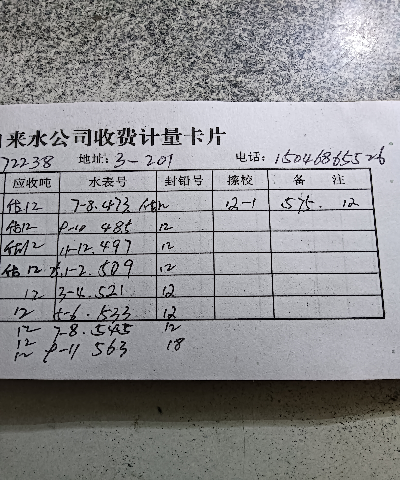 来水公司收费计量卡片
72238 地址: 3-201 电话: 15046865526
应收吨 水表号 封铅号 擦校 备 注
估12 7-8.473 估12 12-1 575. 12
估12 9-10 485 12
估12 11-12.497 12
估12 1-2.509 12
12 3-4.521 12
12 5-6.533 12
12 7-8.545 12
12
12 9-11 563 18